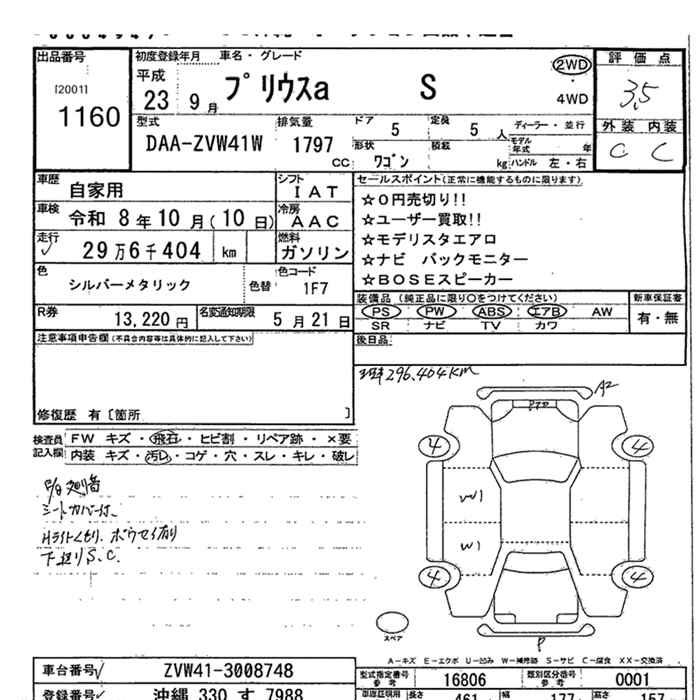 出品番号
[2001]
1160
初度登録年月
車名・グレード
平成
23 9月
プリウスa S
2WD
4WD
評価点
3.5
外装 内装
C C
型式
DAA-ZVW41W
排気量
1797
CC
ドア
5
定員
5 人
形状
ワゴン
積載
kg
ディーラー・並行
モデル年式
年
ハンドル 左・右
車歴
自家用
シフト
IAT
車検
令和 8年 10月(10日)
冷房
AAC
走行
29万6千404 km
燃料
ガソリン
色
シルバーメタリック
色替
色コード
1F7
R券
13,220円
名変通知期限
5月21日
セールスポイント(正常に機能するものに限ります)
☆0円売切り!!
☆ユーザー買取!!
☆モデリスタエアロ
☆ナビ バックモニター
☆BOSEスピーカー
装備品 (純正品に限り○をつけてください)
PS PW ABS エアB AW
SR ナビ TV カワ
新車保証書
有・無
後日品
注意事項申告欄(不具合内容等は具体的に記入して下さい)
修復歴 有〔箇所 〕
検査員記入欄
FW キズ・飛石・ヒビ割・リペア跡・×要
内装 キズ・汚レ・コゲ・穴・スレ・キレ・破レ
シートカバー付
Hライトくもり、ボウセイ有り
下廻りS.C.
296,404KM
A2
4 4
W1
W1
4 4
スペア
P
A-キズ E-エクボ U-凹み W-補修跡 S-サビ C-腐食 XX-交換済
車台番号
ZVW41-3008748
型式指定番号
参考
16806
類別区分番号
参考
0001
登録番号
沖縄 330 す 7988
長さ
461
幅
177
高さ
157